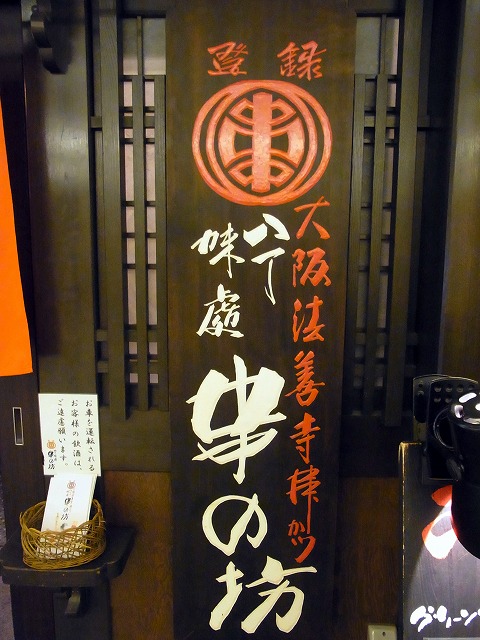 登録
大阪法善寺串かつ
八丁
味處
串の坊
お車を運転される
お客様の飲酒は、
ご遠慮願います。
串の坊
串の坊
グリーン